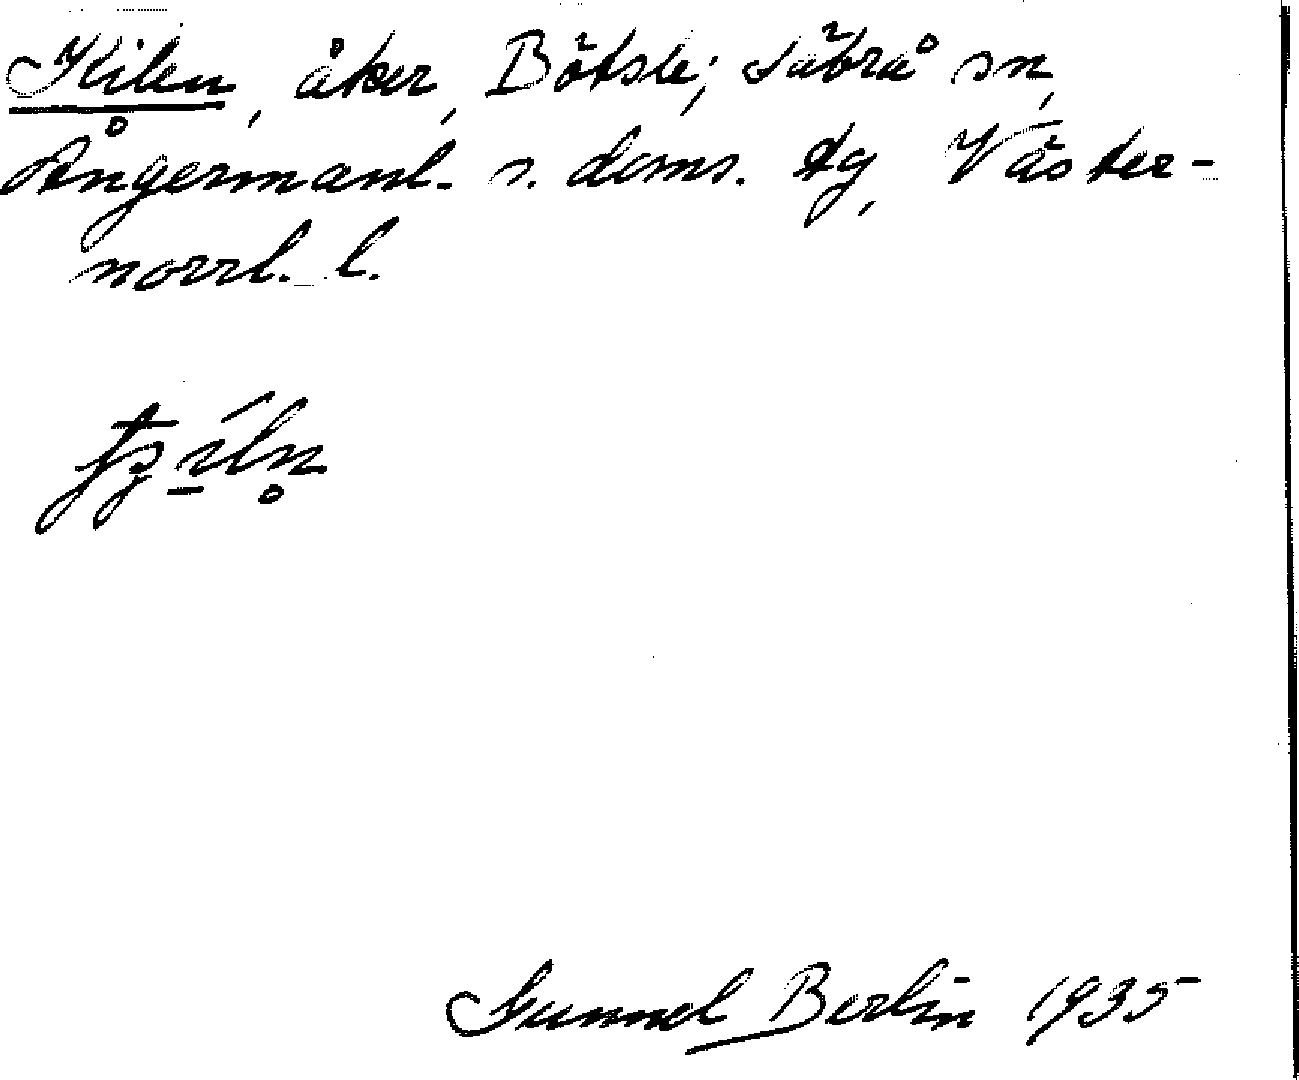 Kilen, åker, Bötsle, Säbrå sn,
Ångermanl. s. doms. tg, Väster-
norrl. l.
Gunnel Berlin 1935